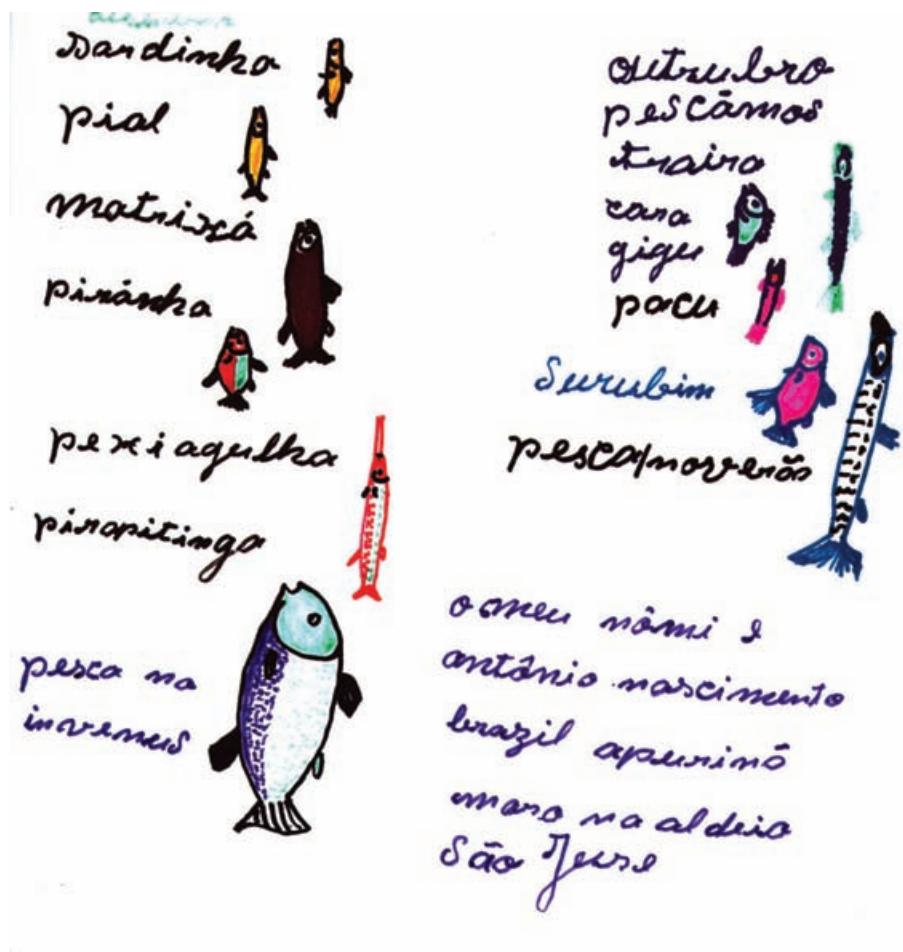 sardinha
pial
matrixá
piránha
pexiagulha
piropitinga
pesca na
invernus
outrubro
pescâmos
traira
cara
gigu
pacu
Surubim
pesca/noverãs
o meu nômi e
antônio nascimento
brazil apurinõ
moro na aldeia
São